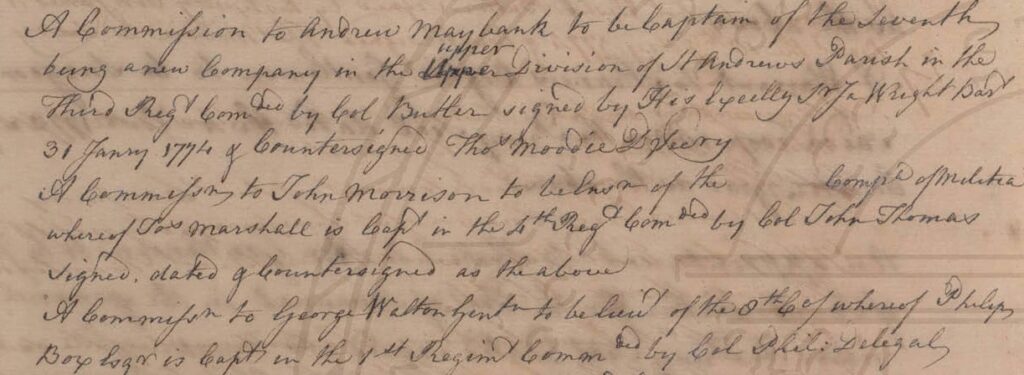 A Commission to Andrew Maybank to be Captain of the Seventh
being a new Company in the upper Division of St Andrews Parish in the
Third Regt Comded by Col Butler signed by His Excelly Sr Ja Wright Bart
31 Janry 1774 & Countersigned Thos Moodie D Secry
A Commissn to John Morrison to be Ensn of the Compa of Militia
whereof Jos Marshall is Capt in the 4th Regt Comded by Col John Thomas
signed, dated & Countersigned as the above
A Commissn to George Walton Gentn to be Lieut of the 8th Co whereof Philip
Box Esqr is Capt in the 1st Regimt Commded by Col Phil: Delegal